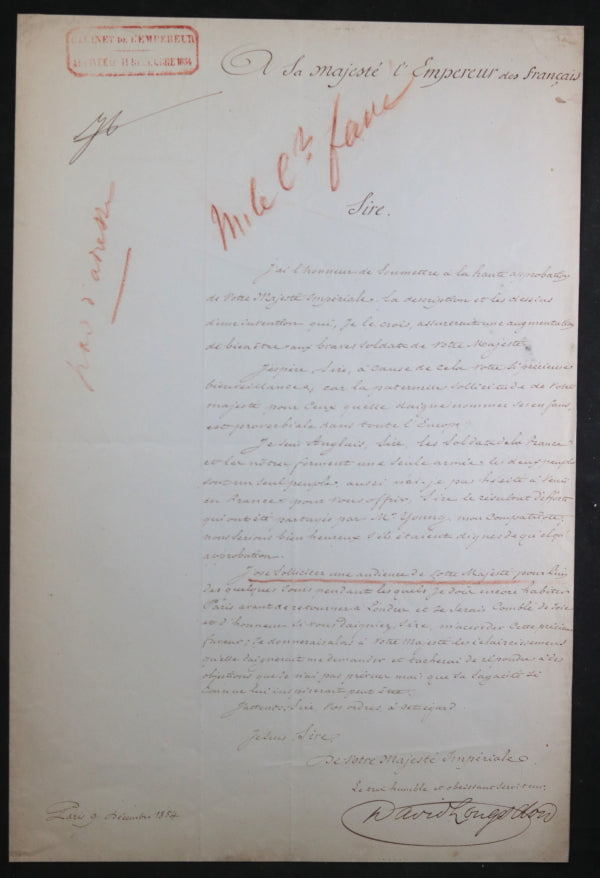 CABINET DE L'EMPEREUR
11 DECEMBRE 1854
A Sa Majesté l'Empereur des Français
M. le Cn. favé
pas d'adresse
Sire.
j'ai l'honneur de Soumettre à la haute approbation
de Votre Majesté Impériale, la description et les dessins
d'une invention qui, Je le crois, assurerait une augmentation
de bien être aux braves soldats de Votre Majesté
J'espère, Sire, à cause de cela votre Si précieuse
bienveillance, car la paternelle Sollicitude de Votre
majesté pour Ceux qu'elle daigne nommer Ses enfans,
est proverbiale dans toute l'Europe.
Je suis Anglais, Sire, les Soldats de la France
et les nôtres forment une Seule armée les deux peuples
sont un seul peuple, aussi n'ai-je pas hésité à Venir
en France pour Vous offrir, Sire le résultat d'efforts
qui ont été partagés par Mr. Young, mon Compatriote;
nous Serions bien heureux S'ils étaient dignes de quelque
approbation.
J'ose Solliciter une audience de Votre Majesté, pour l'un
des quelques Jours pendant lesquels Je dois encore habiter
Paris avant de retourner à Londres et Je Serais Comblé de Joie
et d'honneur Si Vous daigniez, Sire, m'accorder Cette précieuse
faveur; Je donnerais alors à Votre Majesté des éclaircissements
qu'elle daignerait me demander et tacherai de répondre à des
objections que je n'ai pas prévues mais que Sa Sagacité Si
Connue lui inspirerait peut être.
J'attends, Sire, Vos ordres à cet égard
Je suis, Sire,
De Votre Majesté Impériale,
Le très humble et obéissant Serviteur,
David Longsdon
Paris 9 Décembre 1854